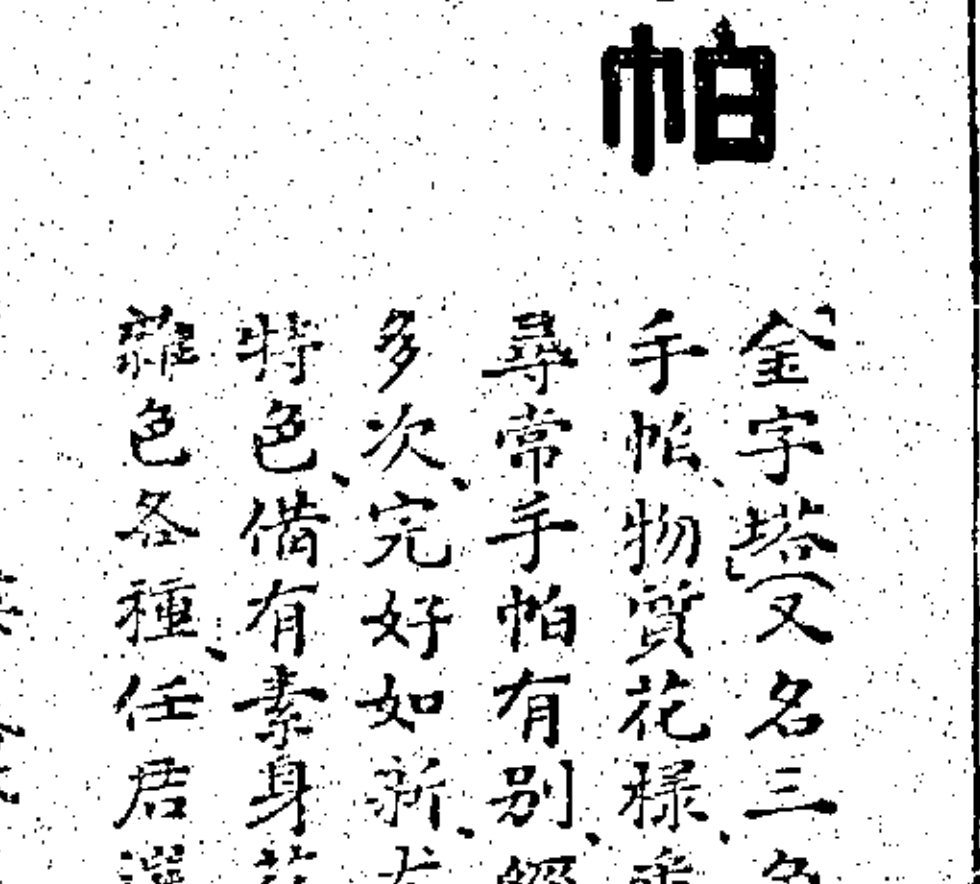 帕
「金字塔」(又名三
手帕、物質花樣、
尋常手帕有別、
多次、完好如新、
特色、備有素身花
雜色各種、任君選